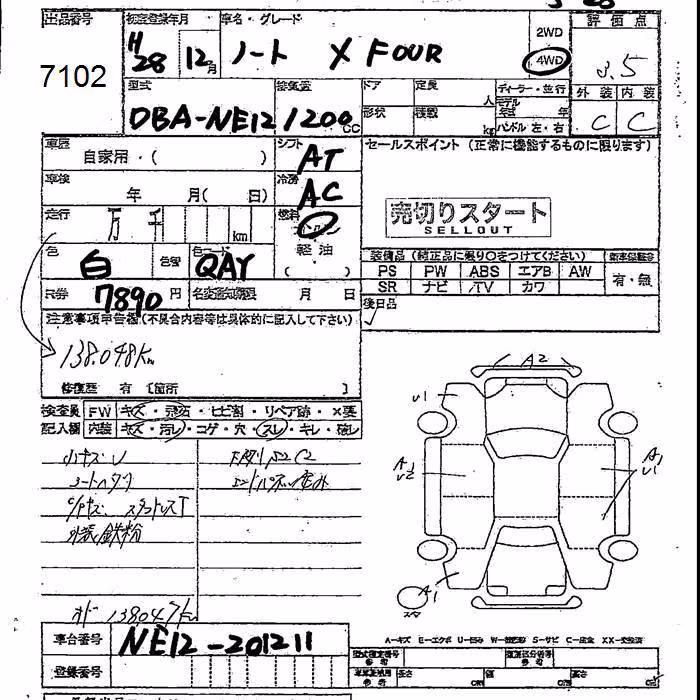 出品番号 初度登録年月 車名・グレード 評価点
7102 H28 12月 ノート X FOUR 2WD 4WD 3.5
型式 排気量 ドア 定員 人 ディーラー・並行 外装 内装
DBA-NE12 1200cc 形状 積載 kg モデル年式 年 ハンドル 左・右 C C
車歴 シフト セールスポイント (正常に機能するものに限ります)
自家用・( ) AT
車検 年 月( 日) 冷房 AC
走行 万 千 km 燃料 売切りスタート
SELLOUT
軽油
色 白 色替 色コード QAY ( ) 装備品 (純正品に限り○をつけてください)
PS PW ABS エアB AW 有・無
SR ナビ TV カワ
7890円 名変期限 月 日 後日品
注意事項申告欄 (不具合内容等は具体的に記入して下さい)
138.048Km
修復歴 有 〔箇所 〕
A2
検査員 FW キズ・飛石・ヒビ割・リペア跡・X要
記入欄 内装 キズ・汚レ・コゲ・穴・スレ・キレ・破レ
U1
小キズU 下廻りS2C2
シートヘタリ
スタッドレスT
外装鉄粉
A1
オド 138047km
スタ
車台番号 NE12-201211
A-キズ E-エクボ U-凹み W-補修跡 S-サビ C-腐食 XX-交換済
登録番号